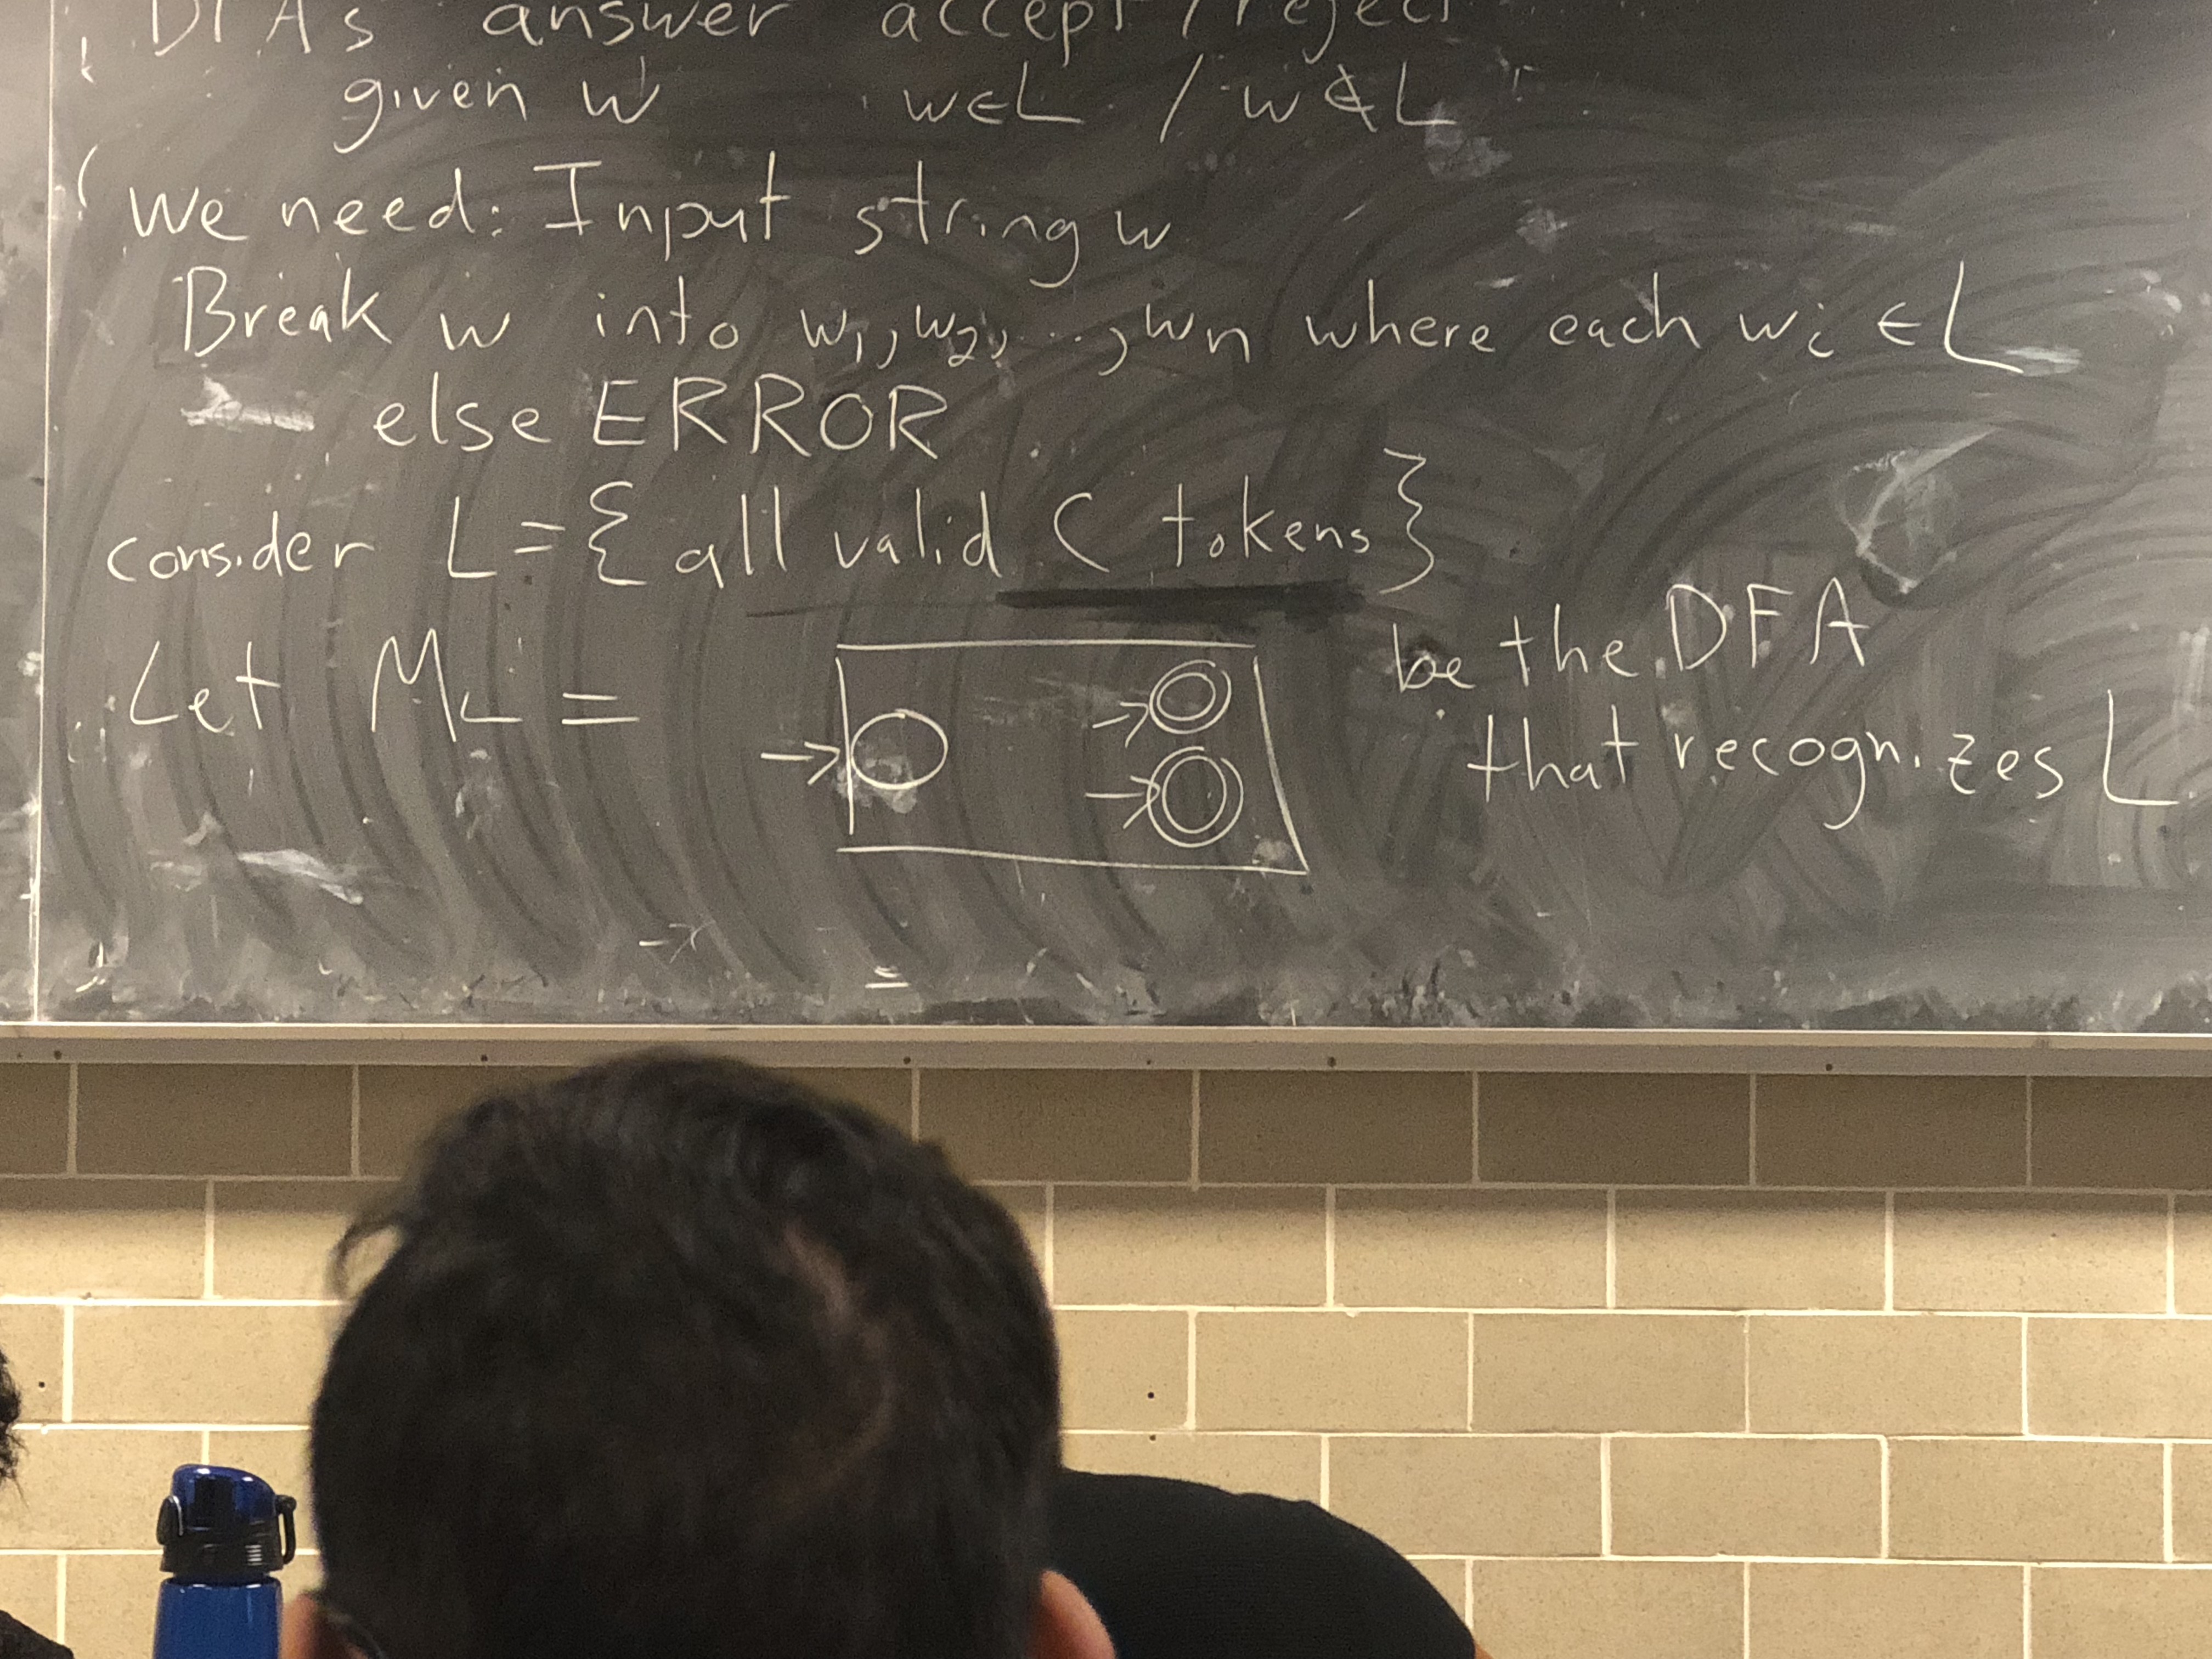 DFAs answer accept / reject
given w w∈L / w∉L
We need: Input string w
Break w into w₁, w₂, ..., wn where each wi ∈ L
else ERROR
consider L = { all valid C tokens }
Let ML = be the DFA
that recognizes L